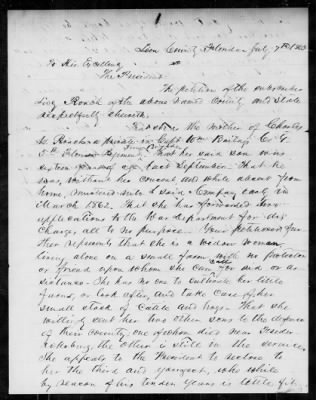 Leon County Florida July 7th 1863
To His Excellency
The President
The petition of the undersigned
Roach of the above named County and State
respectfully sheweth,
That she is the mother of Charles
W. Roach a private in Capt Wm Bailey Co G
5th Florida Regiment. That her said son was
sixteen years of age last September. That he
was, without her consent and while absent from
home, mustered into said Company early in
March 1862. That she has forwarded two
applications to the War department for dis
charge, all to no purpose. Your petitioner fur
ther represents that she is a widow woman
living alone on a small farm with no protector
or friend upon whom she can call for aid or as
sistance. She has no one to cultivate her little
farm, or look after, and take care of her
small stock of Cattle and hogs. That she
willingly sent her two other sons to the defence
of their country, one of whom died near Freder
icksburg the other is still in the service.
She appeals to the President to restore to
her the third and youngest, who while
by reason of his tender years is little fit